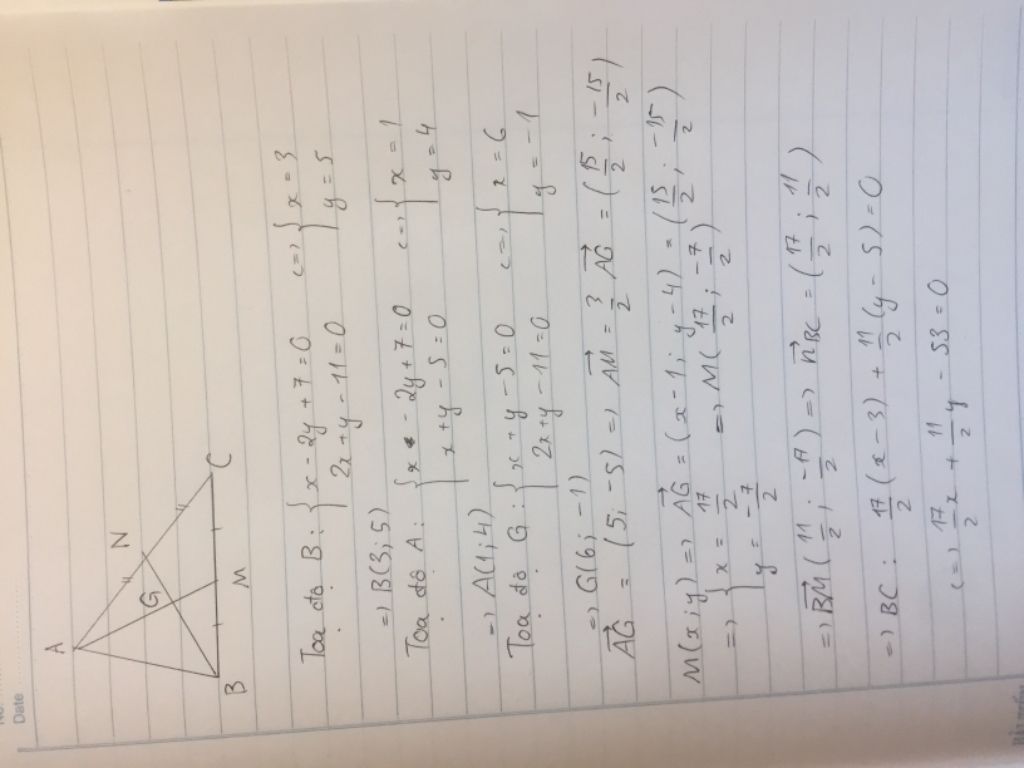 No.
Date
A
N
G
B M C
Toạ độ B: { x - 2y + 7 = 0 <=> { x = 3
2x + y - 11 = 0 y = 5
=> B(3; 5)
Toạ độ A: { x - 2y + 7 = 0 <=> { x = 1
x + y - 5 = 0 y = 4
=> A(1; 4)
Toạ độ G: { x + y - 5 = 0 <=> { x = 6
2x + y - 11 = 0 y = -1
=> G(6; -1)
\vec{AG} = (5; -5) => \vec{AM} = \frac{3}{2} \vec{AG} = (\frac{15}{2}; -\frac{15}{2})
M(x; y) => \vec{AG} = (x - 1; y - 4) = (\frac{15}{2}; \frac{-15}{2})
=> { x = \frac{17}{2} => M(\frac{17}{2}; \frac{-7}{2})
y = -\frac{7}{2}
=> \vec{BM}(\frac{11}{2}; \frac{-17}{2}) => \vec{n}_{BC} = (\frac{17}{2}; \frac{11}{2})
=> BC: \frac{17}{2}(x - 3) + \frac{11}{2}(y - 5) = 0
<=> \frac{17}{2}x + \frac{11}{2}y - 53 = 0